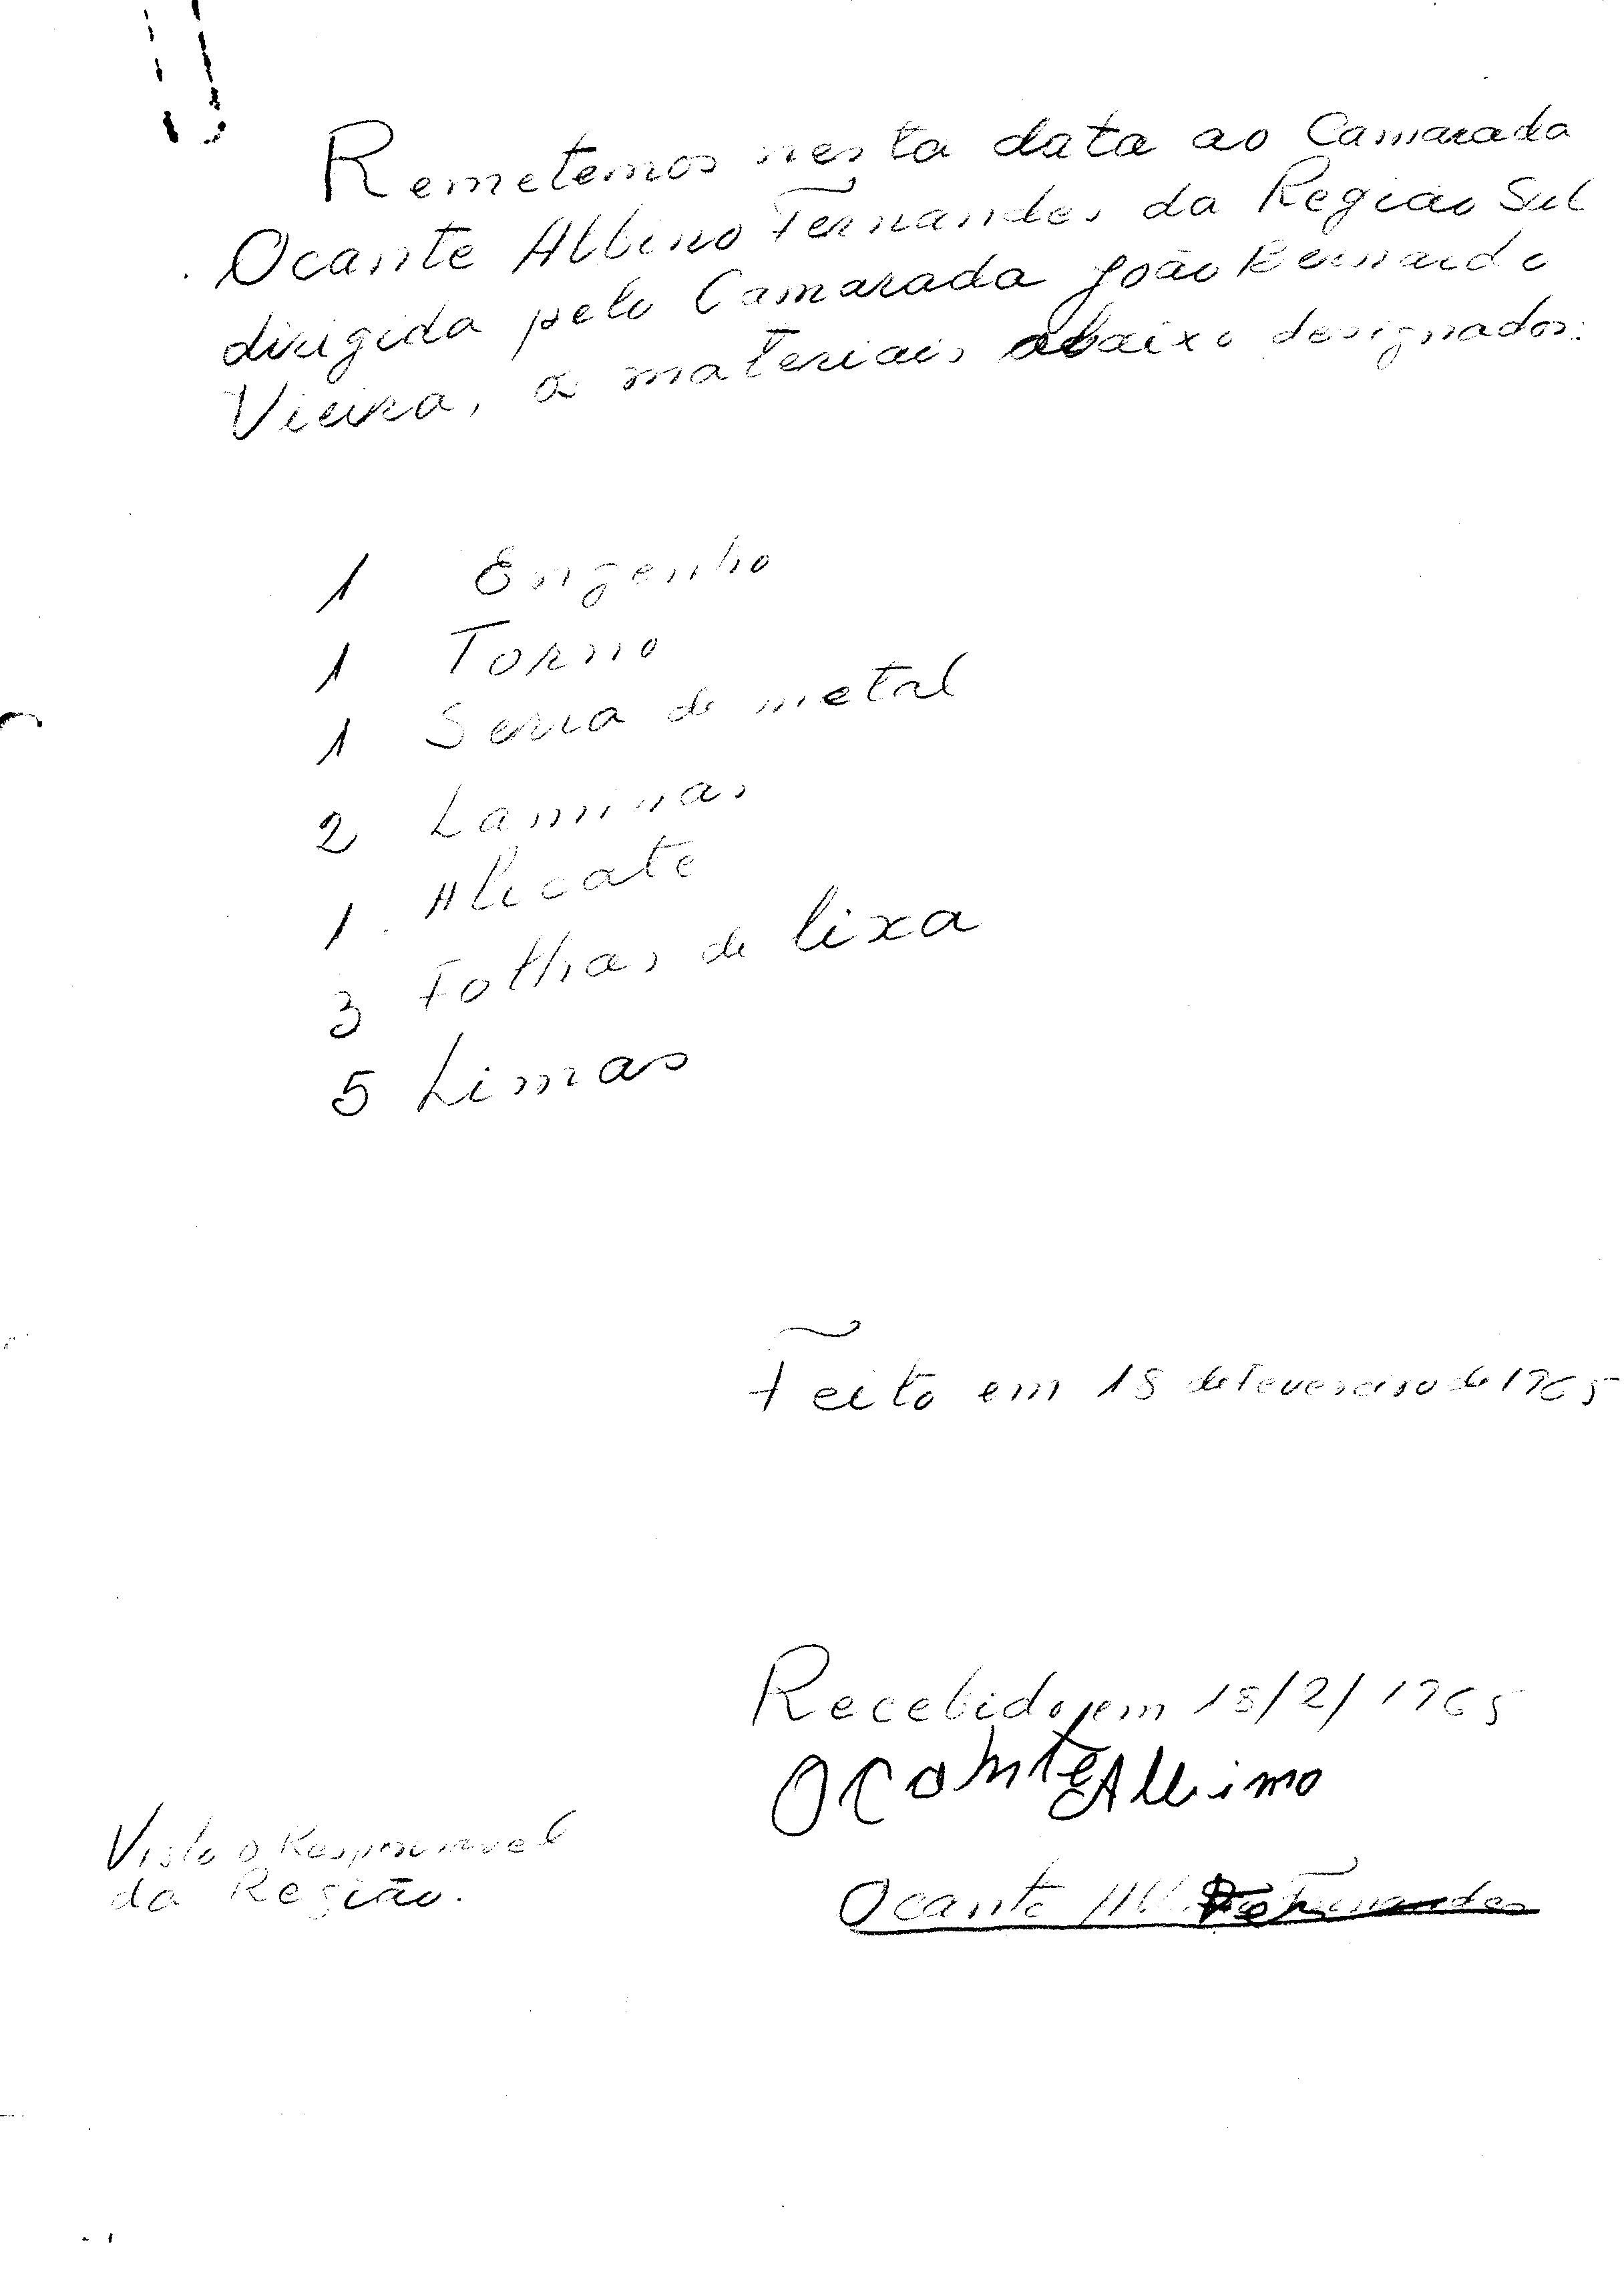 Remetemos nesta data ao Camarada
Ocante Albino Fernandes da Região Sul
dirigida pelo Camarada João Bernardo
Vieira, os materiais abaixo designados:
1 Engenho
1 Torno
1 Serra de metal
2 Laminas
1 Alicate
3 Folhas de lixa
5 Limas
Feito em 18 de Fevereiro de 1965
Recebido em 18/2/1965
Ocante Albimo
Visto o Responsavel
da Região.
Ocante Albino Fernandes